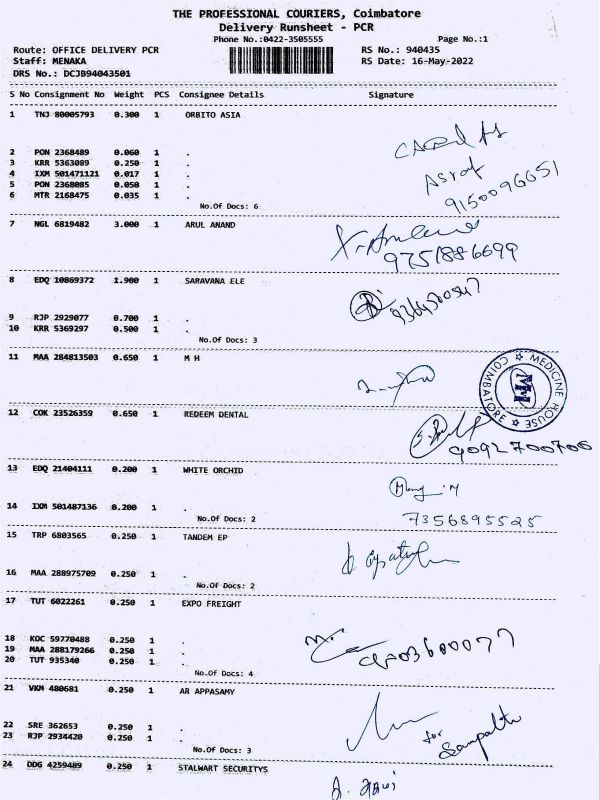 THE PROFESSIONAL COURIERS, Coimbatore
Delivery Runsheet - PCR
Phone No.:0422-3505555
Page No.:1
Route: OFFICE DELIVERY PCR
RS No.: 940435
Staff: MENAKA
RS Date: 16-May-2022
DRS No.: DCJB94043501
S No Consignment No Weight PCS Consignee Details Signature
1 TNJ 80005793 0.300 1 ORBITO ASIA
2 PON 2368489 0.060 1 .
3 KRR 5363089 0.250 1 .
4 IXM 501471121 0.017 1 .
5 PON 2368085 0.050 1 .
6 MTR 2168475 0.035 1 .
Asraf
9150096651
No.Of Docs: 6
7 NGL 6819482 3.000 1 ARUL ANAND
9751886699
8 EDQ 10869372 1.900 1 SARAVANA ELE
9 RJP 2929077 0.700 1 .
10 KRR 5369297 0.500 1 .
No.Of Docs: 3
11 MAA 284813503 0.650 1 M H
MEDICINE HOUSE
COIMBATORE
MH
12 COK 23526359 0.650 1 REDEEM DENTAL
9092700706
13 EDQ 21404111 0.200 1 WHITE ORCHID
14 IXM 501487136 0.200 1 .
7356895525
No.Of Docs: 2
15 TRP 6803565 0.250 1 TANDEM EP
16 MAA 288975709 0.250 1 .
No.Of Docs: 2
17 TUT 6022261 0.250 1 EXPO FREIGHT
18 KOC 59770488 0.250 1 .
19 MAA 288179266 0.250 1 .
20 TUT 935340 0.250 1 .
No.Of Docs: 4
21 VKM 480681 0.250 1 AR APPASAMY
22 SRE 362653 0.250 1 .
23 RJP 2934420 0.250 1 .
for
No.Of Docs: 3
24 DDG 4259489 0.250 1 STALWART SECURITYS